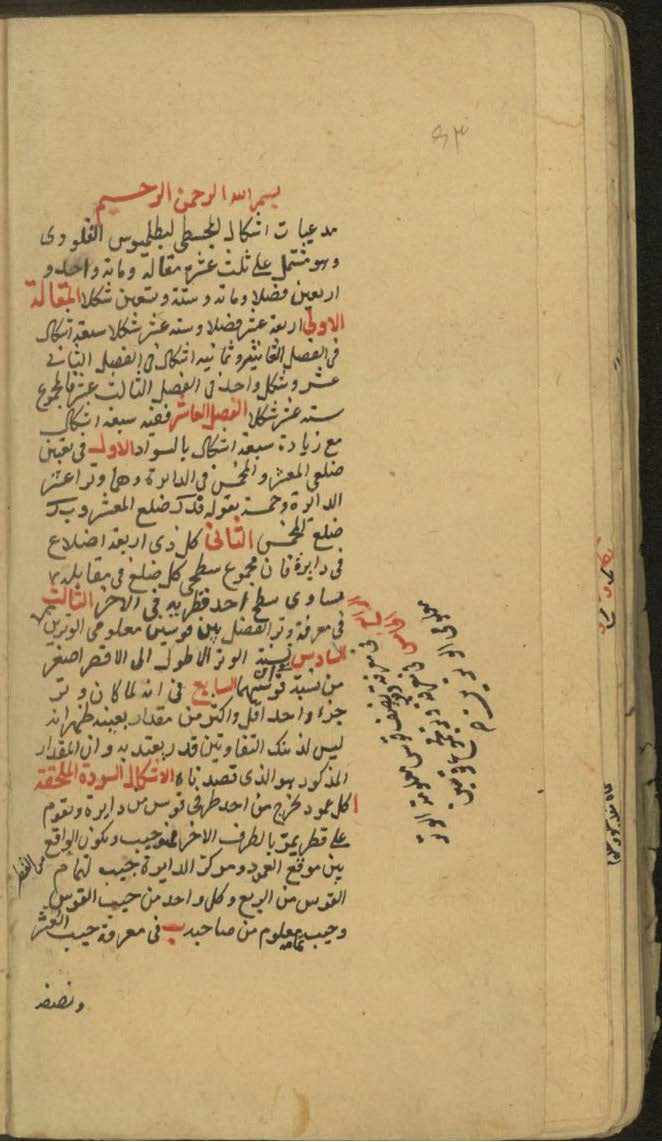 ٤٣
بسم الله الرحمن الرحيم
مدعيات اشكال المجسطي لبطلميوس القلوذى
وهو مشتمل على ثلث عشرة مقالة ومائة واحد و
اربعين فصلا ومائة وستة وتسعين شكلا المقالة
الاولى اربعة عشر فصلا وستة عشر شكلا سبعة اشكال
فى الفصل العاشر وثمانية اشكال فى الفصل الثانى
عشر وشكل واحد فى الفصل الثالث عشر فالمجموع
ستة عشر شكلا الفصل العاشر ففيه سبعة اشكال
مع زيادة سبعة اشكال بالسواد الاول فى تعيين
ضلعى المعشر والمخمس فى الدايرة وهما وترا عشر
الدايرة وخمسه بقوله فدك ضلع المعشر وب ك
ضلع المخمس الثانى كل ذى اربعة اضلاع
فى دايرة فان مجموع سطحى كل ضلع فى مقابله
مساوى سطح احد قطريه فى الاخر الثالث
فى معرفة وتر الفضل بين قوسين معلومى الوترين
السادس نسبة الوتر الاطول الى الاقصر اصغر
من نسبة قوسيهما السابع فى انه لما كان وتر
جزء واحد اقل واكثر من مقدار بعينه ظهر انه
ليس لذينك التفاوتين قدر يعتد به وان المقدار
المذكور هو الذى قصدناه الاشكال السودة الملحقة
ا كل عمود يخرج من احد طرفى قوس من دايرة ويقوم
على قطر يمر بالطرف الاخر فهو جيب ويكون الواقع
بين موقع العمود ومركز الدايرة جيب لتمام
القوس من الربع وكل واحد من جيب القوس
وجيب تمامه معلوم من صاحبه ب فى معرفة جيب العشر
ونصفه
من القطر
الرابع فى معرفة وتر نصف قوس معلومة الوتر
الخامس فى معرفة وتر مجموع قوسين
معلومى الوترين